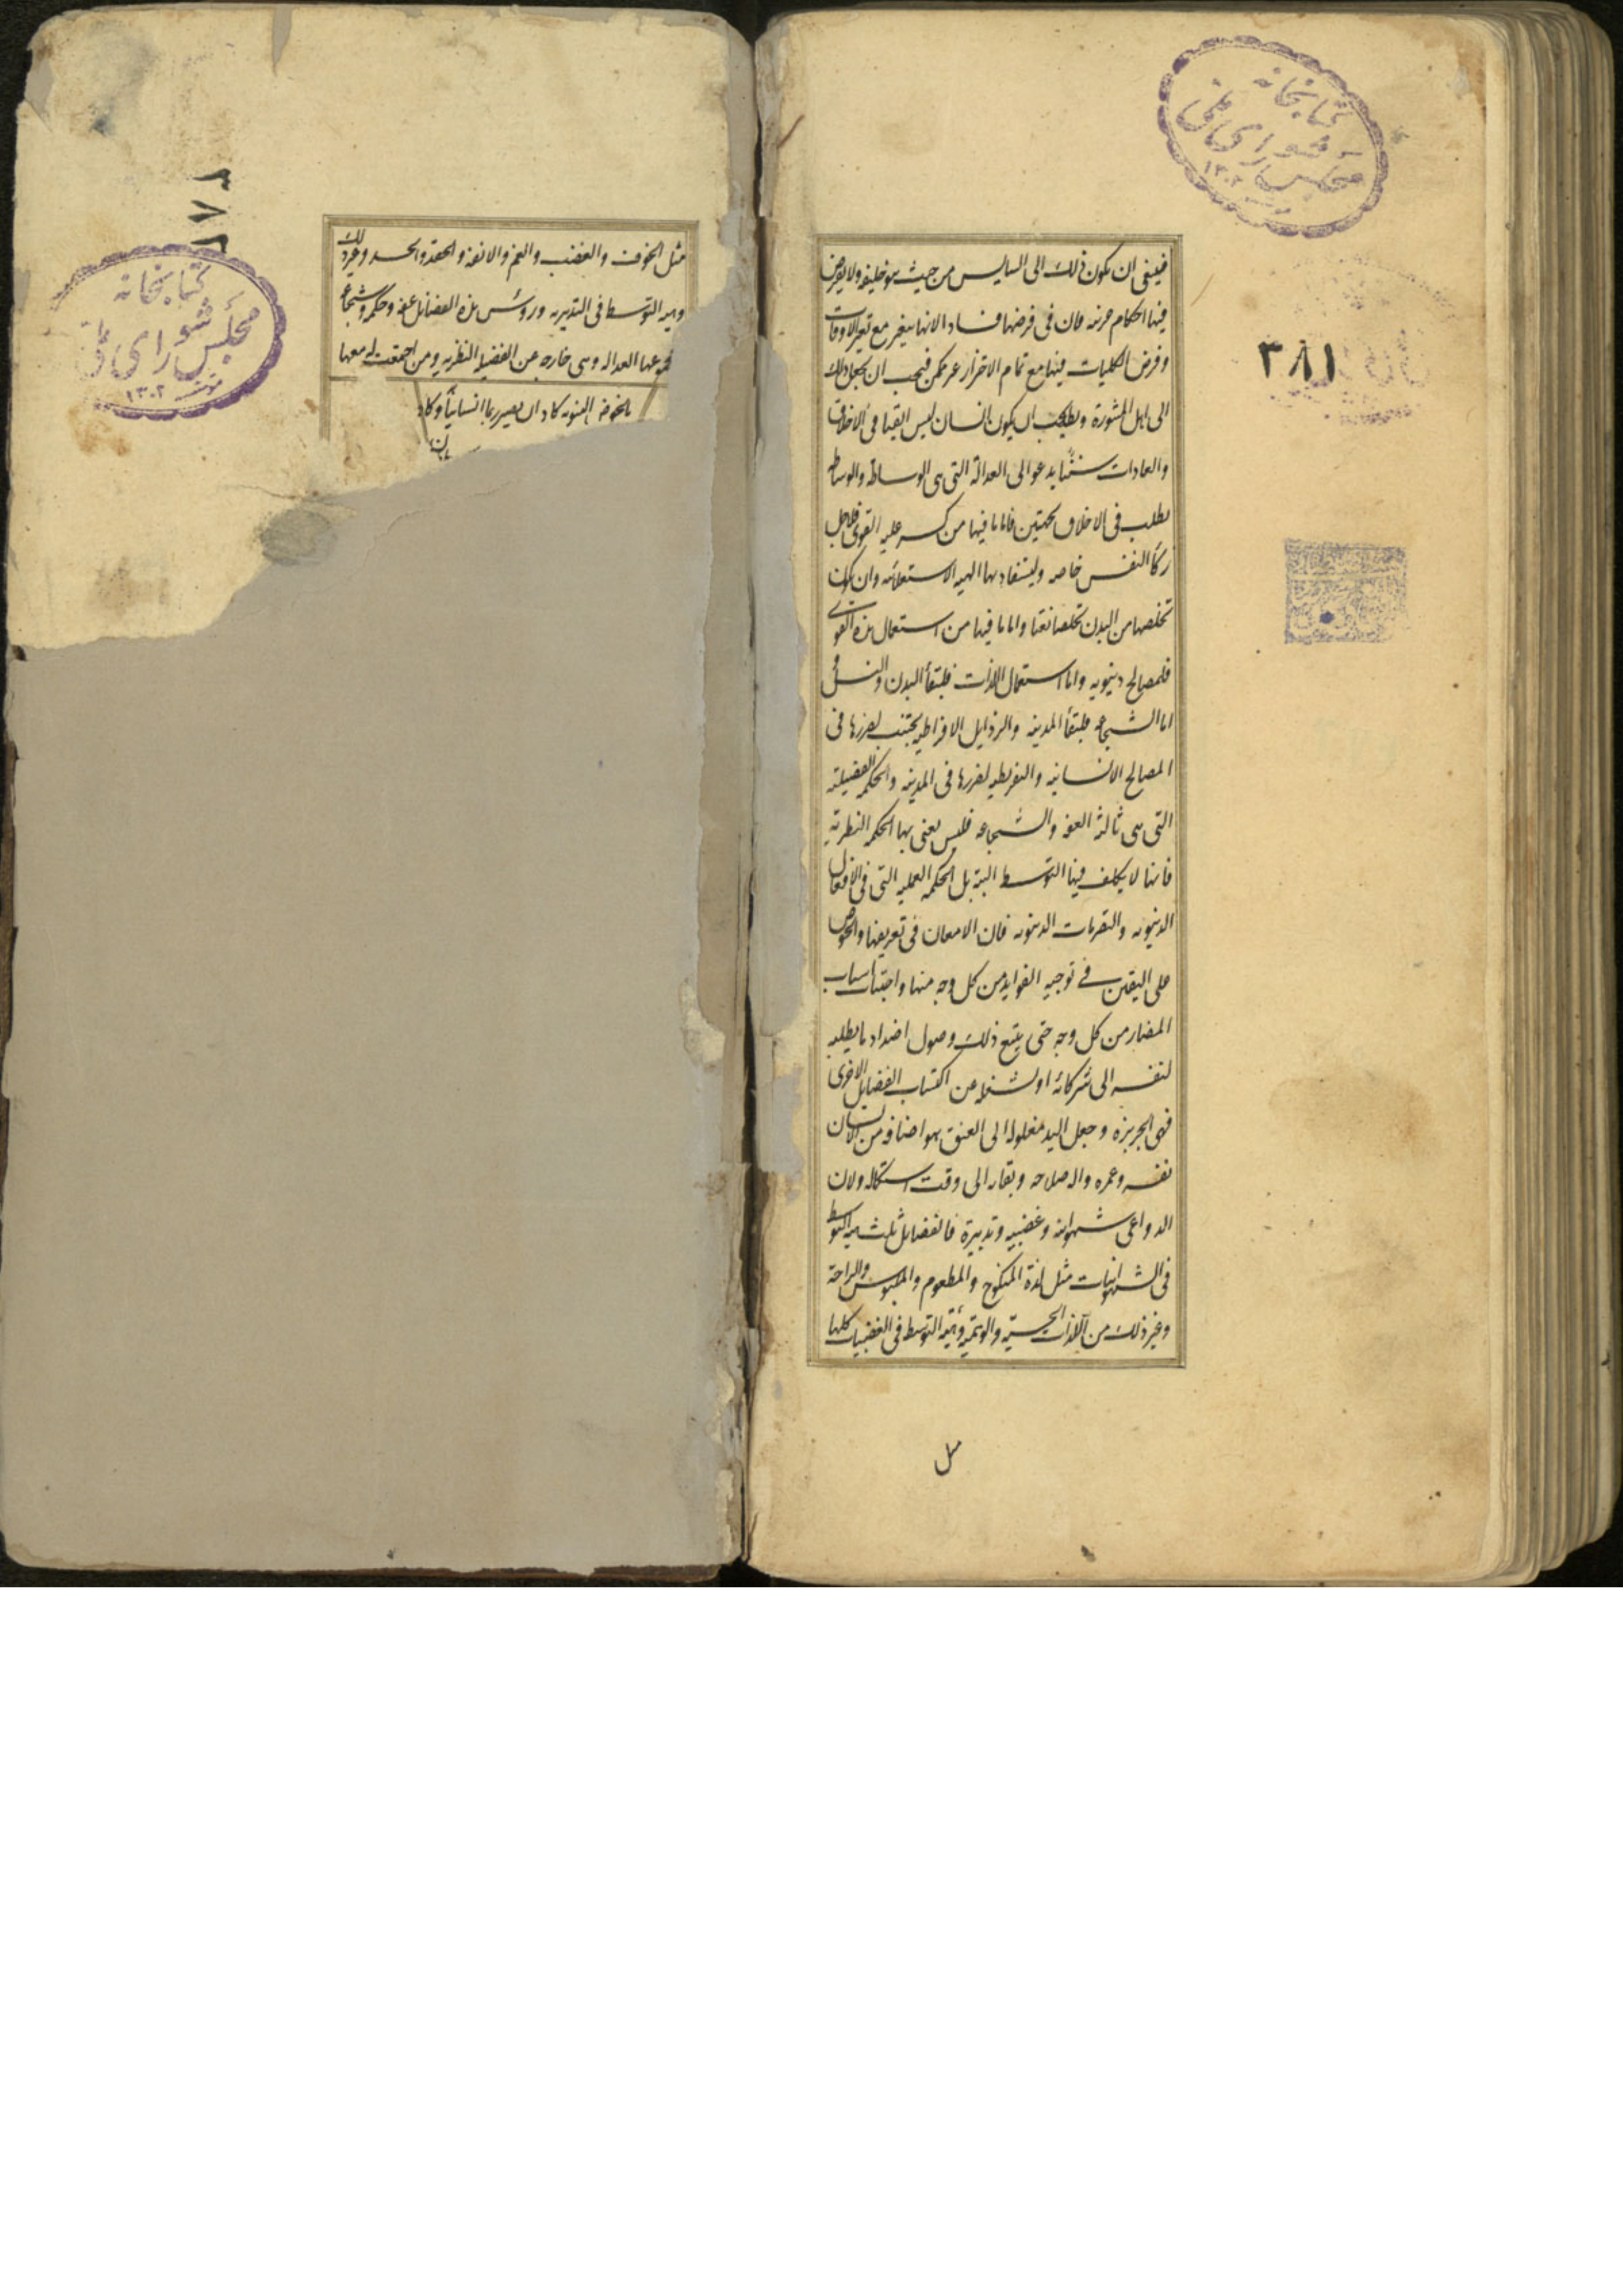 كتابخانه
مجلس شورای ملی
۱۳۰۲
۳۸۱
فينبغی ان يكون ذلك الى السايس من حيث هو خليفه ولا يفرض
فيها احكام جزئيه فان فی فرضها فسادا لانها يتغير مع تغير الاوقات
وفرض الكليات فيها مع تمام الاحتراز غير ممكن فيجب ان يجعل ذلك
الى اهل المشورة ويجب ان يكون السان ليس ايضا فی الاخلاق
والعادات سننا يدعو الى العدالة التی هی الوساطه والوساطه
يطلب فی الاخلاق بجهتين فاما ما فيها من كسر غلبه القوى فلاجل
زكأ النفس خاصه وليستفاد بها الهيه الاستعلائيه وان يكون
تخلصها من البدن تخلصا نقيا واما ما فيها من استعمال هذه القوى
فلمصالح دنيويه واما استعمال اللذات فلبقأ البدن والنسل
اما الشجاعه فلبقأ المدينه والرذايل الافراطيه يجتنب لضررها فی
المصالح الانسانيه والتفريطيه لضررها فی المدينه والحكمه الفضيلته
التی هی ثالثه العفه والشجاعه فليس يعنی بها الحكمه النظريه
فانها لا يكلف فيها التوسط البته بل الحكمه العمليه التی فی الافعال
الدنيويه والتصرفات الدنيويه فان الامعان فی تعريفها والحرص
على التفنن فی توجيه الفوايد من كل وجه منها واجتناب اسباب
المضار من كل وجه حتى يتبع ذلك وصول اضداد ما يطلبه
لنفسه الى شركائه او لشغله عن اكتساب الفضايل الاخرى
فهی الجربزه وجعل اليد مغلوله الى العنق هو اضاعه من الانسان
نفسه وعمره واله صلاحه وبقاه الى وقت استكماله ولان
الدواعی شهوانيه وغضبيه وتدبيرة فالفضايل ثلثه هيه التوسط
فی الشهوانيات مثل لذة المنكوح والمطعوم والملبوس والراحة
وغير ذلك من اللذات الحسيّه والوهميّه وهيه التوسط فی الغضبيات كلها
مثل
مثل الخوف والغضب والغم والانفه والحقد والحسد وغير ذلك
وهيه التوسط فی التدبيريه ورؤس هذه الفضايل عفه وحكمه وشجاعه
مجموعها العداله وهی خارجه عن الفضيله النظريه ومن اجتمعت له معها
بالخواص النبويه كاد ان يصير ربا انسانياً وكاد
ان
كتابخانه
مجلس شورای ملی
۱۳۰۲